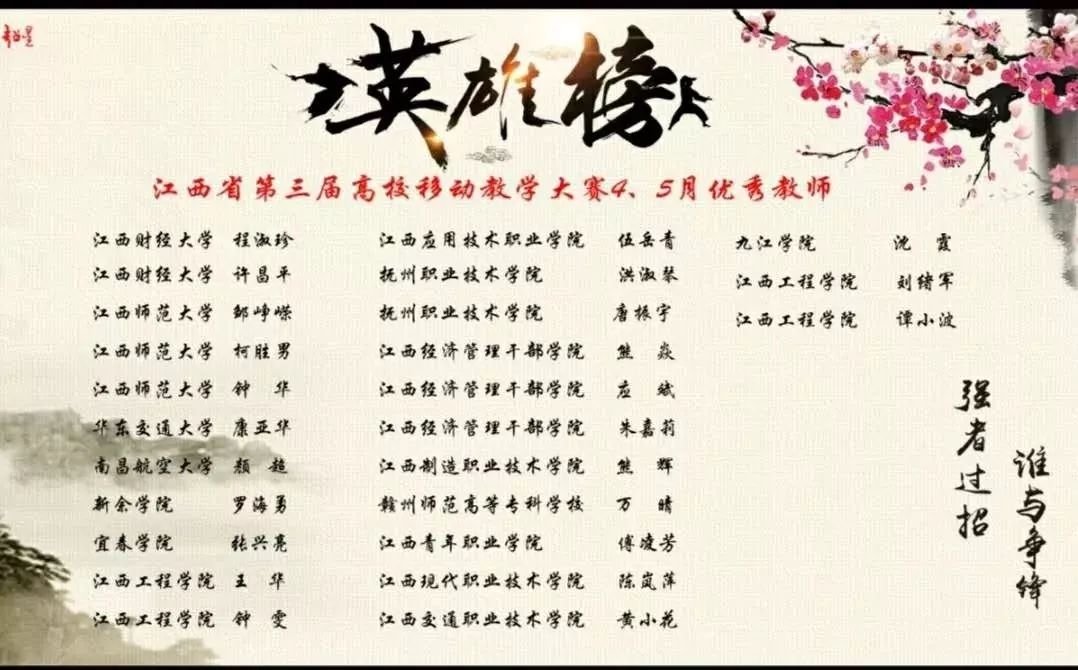 英雄榜
江西省第三届高校移动教学大赛4、5月优秀教师
江西财经大学 程淑珍
江西财经大学 许昌平
江西师范大学 邹峥嵘
江西师范大学 柯胜男
江西师范大学 钟 华
华东交通大学 康亚华
南昌航空大学 颜 超
新余学院 罗海勇
宜春学院 张兴亮
江西工程学院 王 华
江西工程学院 钟 雯
江西应用技术职业学院 伍岳青
抚州职业技术学院 洪淑琴
抚州职业技术学院 唐振宇
江西经济管理干部学院 熊 焱
江西经济管理干部学院 应 斌
江西经济管理干部学院 朱嘉莉
江西制造职业技术学院 熊 辉
赣州师范高等专科学校 万 晴
江西青年职业学院 傅凌芳
江西现代职业技术学院 陈岚萍
江西交通职业技术学院 黄小花
九江学院 沈 霞
江西工程学院 刘绪军
江西工程学院 谭小波
强者过招
谁与争锋